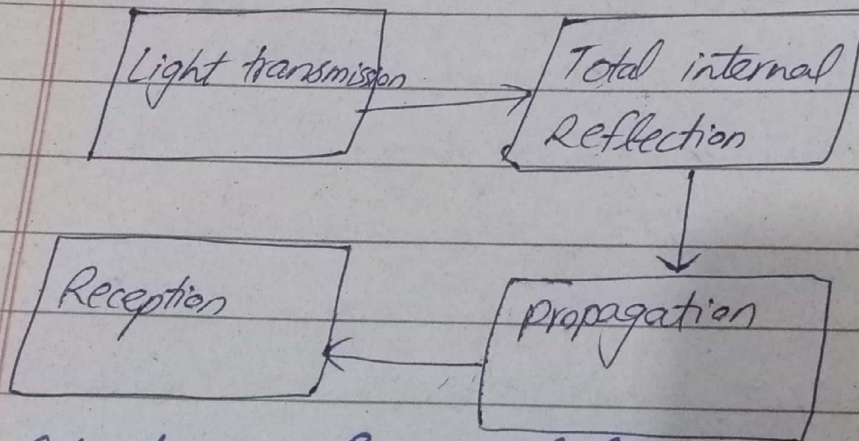 Light transmission
Total internal
Reflection
Reception
propagation